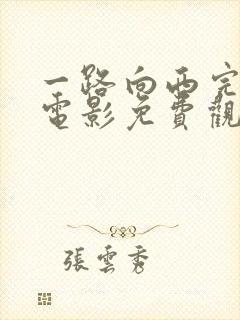 一路向西完
電影免費觀
張雲秀